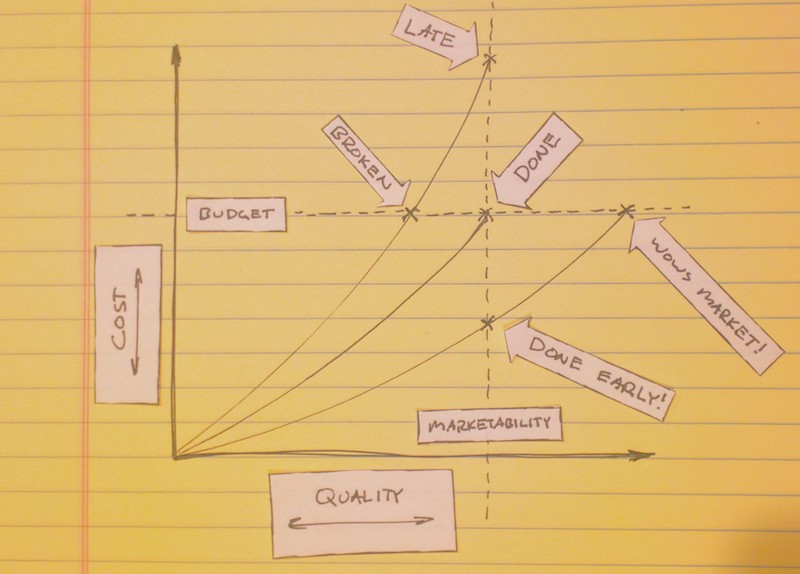 LATE
BROKEN
DONE
BUDGET
WOWS MARKET!
COST
DONE EARLY!
MARKETABILITY
QUALITY